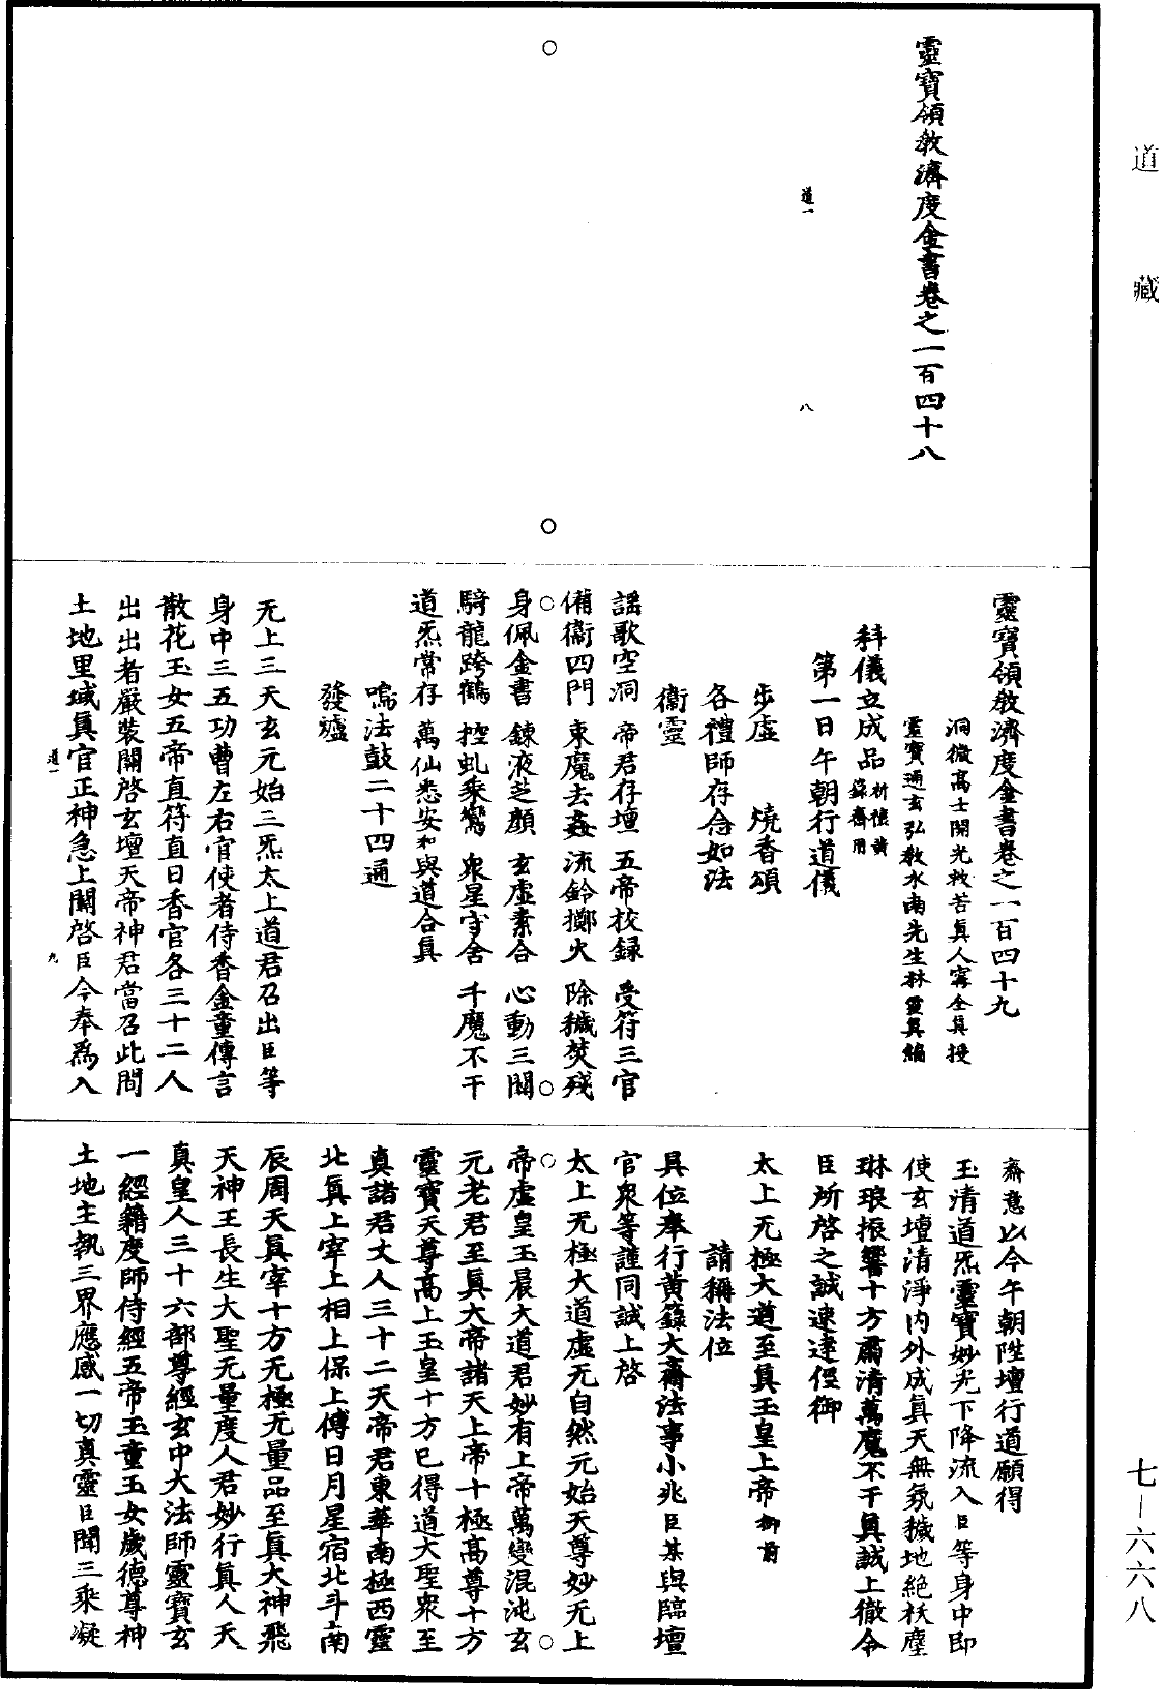 道藏
七—六六八
靈寶領教濟度金書卷之一百四十八
道一
八
靈寶領教濟度金書卷之一百四十九
洞微高士開光救苦真人甯全真授
靈寶通玄弘教水南先生林靈真編
科儀立成品祈禳黃籙齋用
第一日午朝行道儀
步虛　燒香頌
各禮師存念如法
衛靈
謠歌空洞　帝君存壇　五帝校錄　受符三官
備衛四門　束魔去姦　流鈴擲火　除穢焚殘
身佩金書　鍊液芝顏　玄虛素合　心動三關
騎龍跨鶴　控虬乘鸞　衆星守舍　千魔不干
道炁常存　萬仙悉安和與道合真
鳴法鼓二十四通
發爐
无上三天玄元始三炁太上道君召出臣等
身中三五功曹左右官使者侍香金童傳言
散花玉女五帝直符直日香官各三十二人
出出者嚴裝關啓玄壇天帝神君當召此間
土地里域真官正神急上關啓臣今奉爲入
道一
九
齋意以今午朝陞壇行道願得
玉清道炁靈寶妙光下降流入臣等身中即
使玄壇清淨內外成真天無氛穢地絕袄塵
琳琅振響十方肅清萬魔不干真誠上徹令
臣所啓之誠速達徑御
太上无極大道至真玉皇上帝御前
請稱法位
具位奉行黃籙大齋法事小兆臣某與臨壇
官衆等謹同誠上啓
太上无極大道虛无自然元始天尊妙无上
帝虛皇玉晨大道君妙有上帝萬變混沌玄
元老君至真大帝諸天上帝十極高尊十方
靈寶天尊高上玉皇十方已得道大聖衆至
真諸君丈人三十二天帝君東華南極西靈
北真上宰上相上保上傅日月星宿北斗南
辰周天真宰十方无極无量品至真大神飛
天神王長生大聖无量度人君妙行真人天
真皇人三十六部尊經玄中大法師靈寶玄
一經籍度師侍經五帝玉童玉女歲德尊神
土地主執三界應感一切真靈臣聞三乘凝